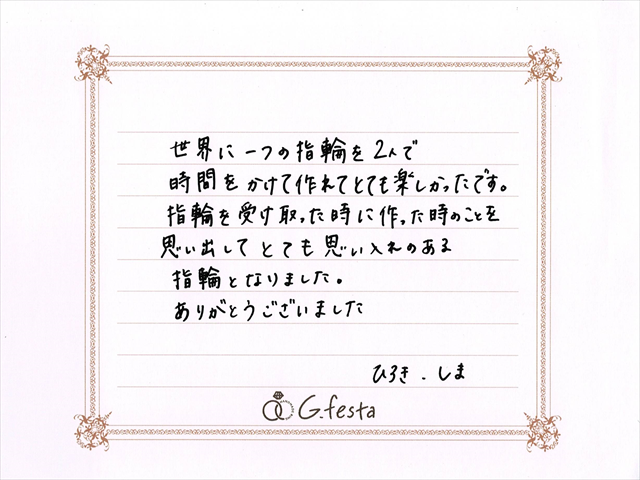 世界に一つの指輪を2人で
時間をかけて作れてとても楽しかったです。
指輪を受け取った時に作った時のことを
思い出してとても思い入れのある
指輪となりました。
ありがとうございました
ひろき.しま
G.festa